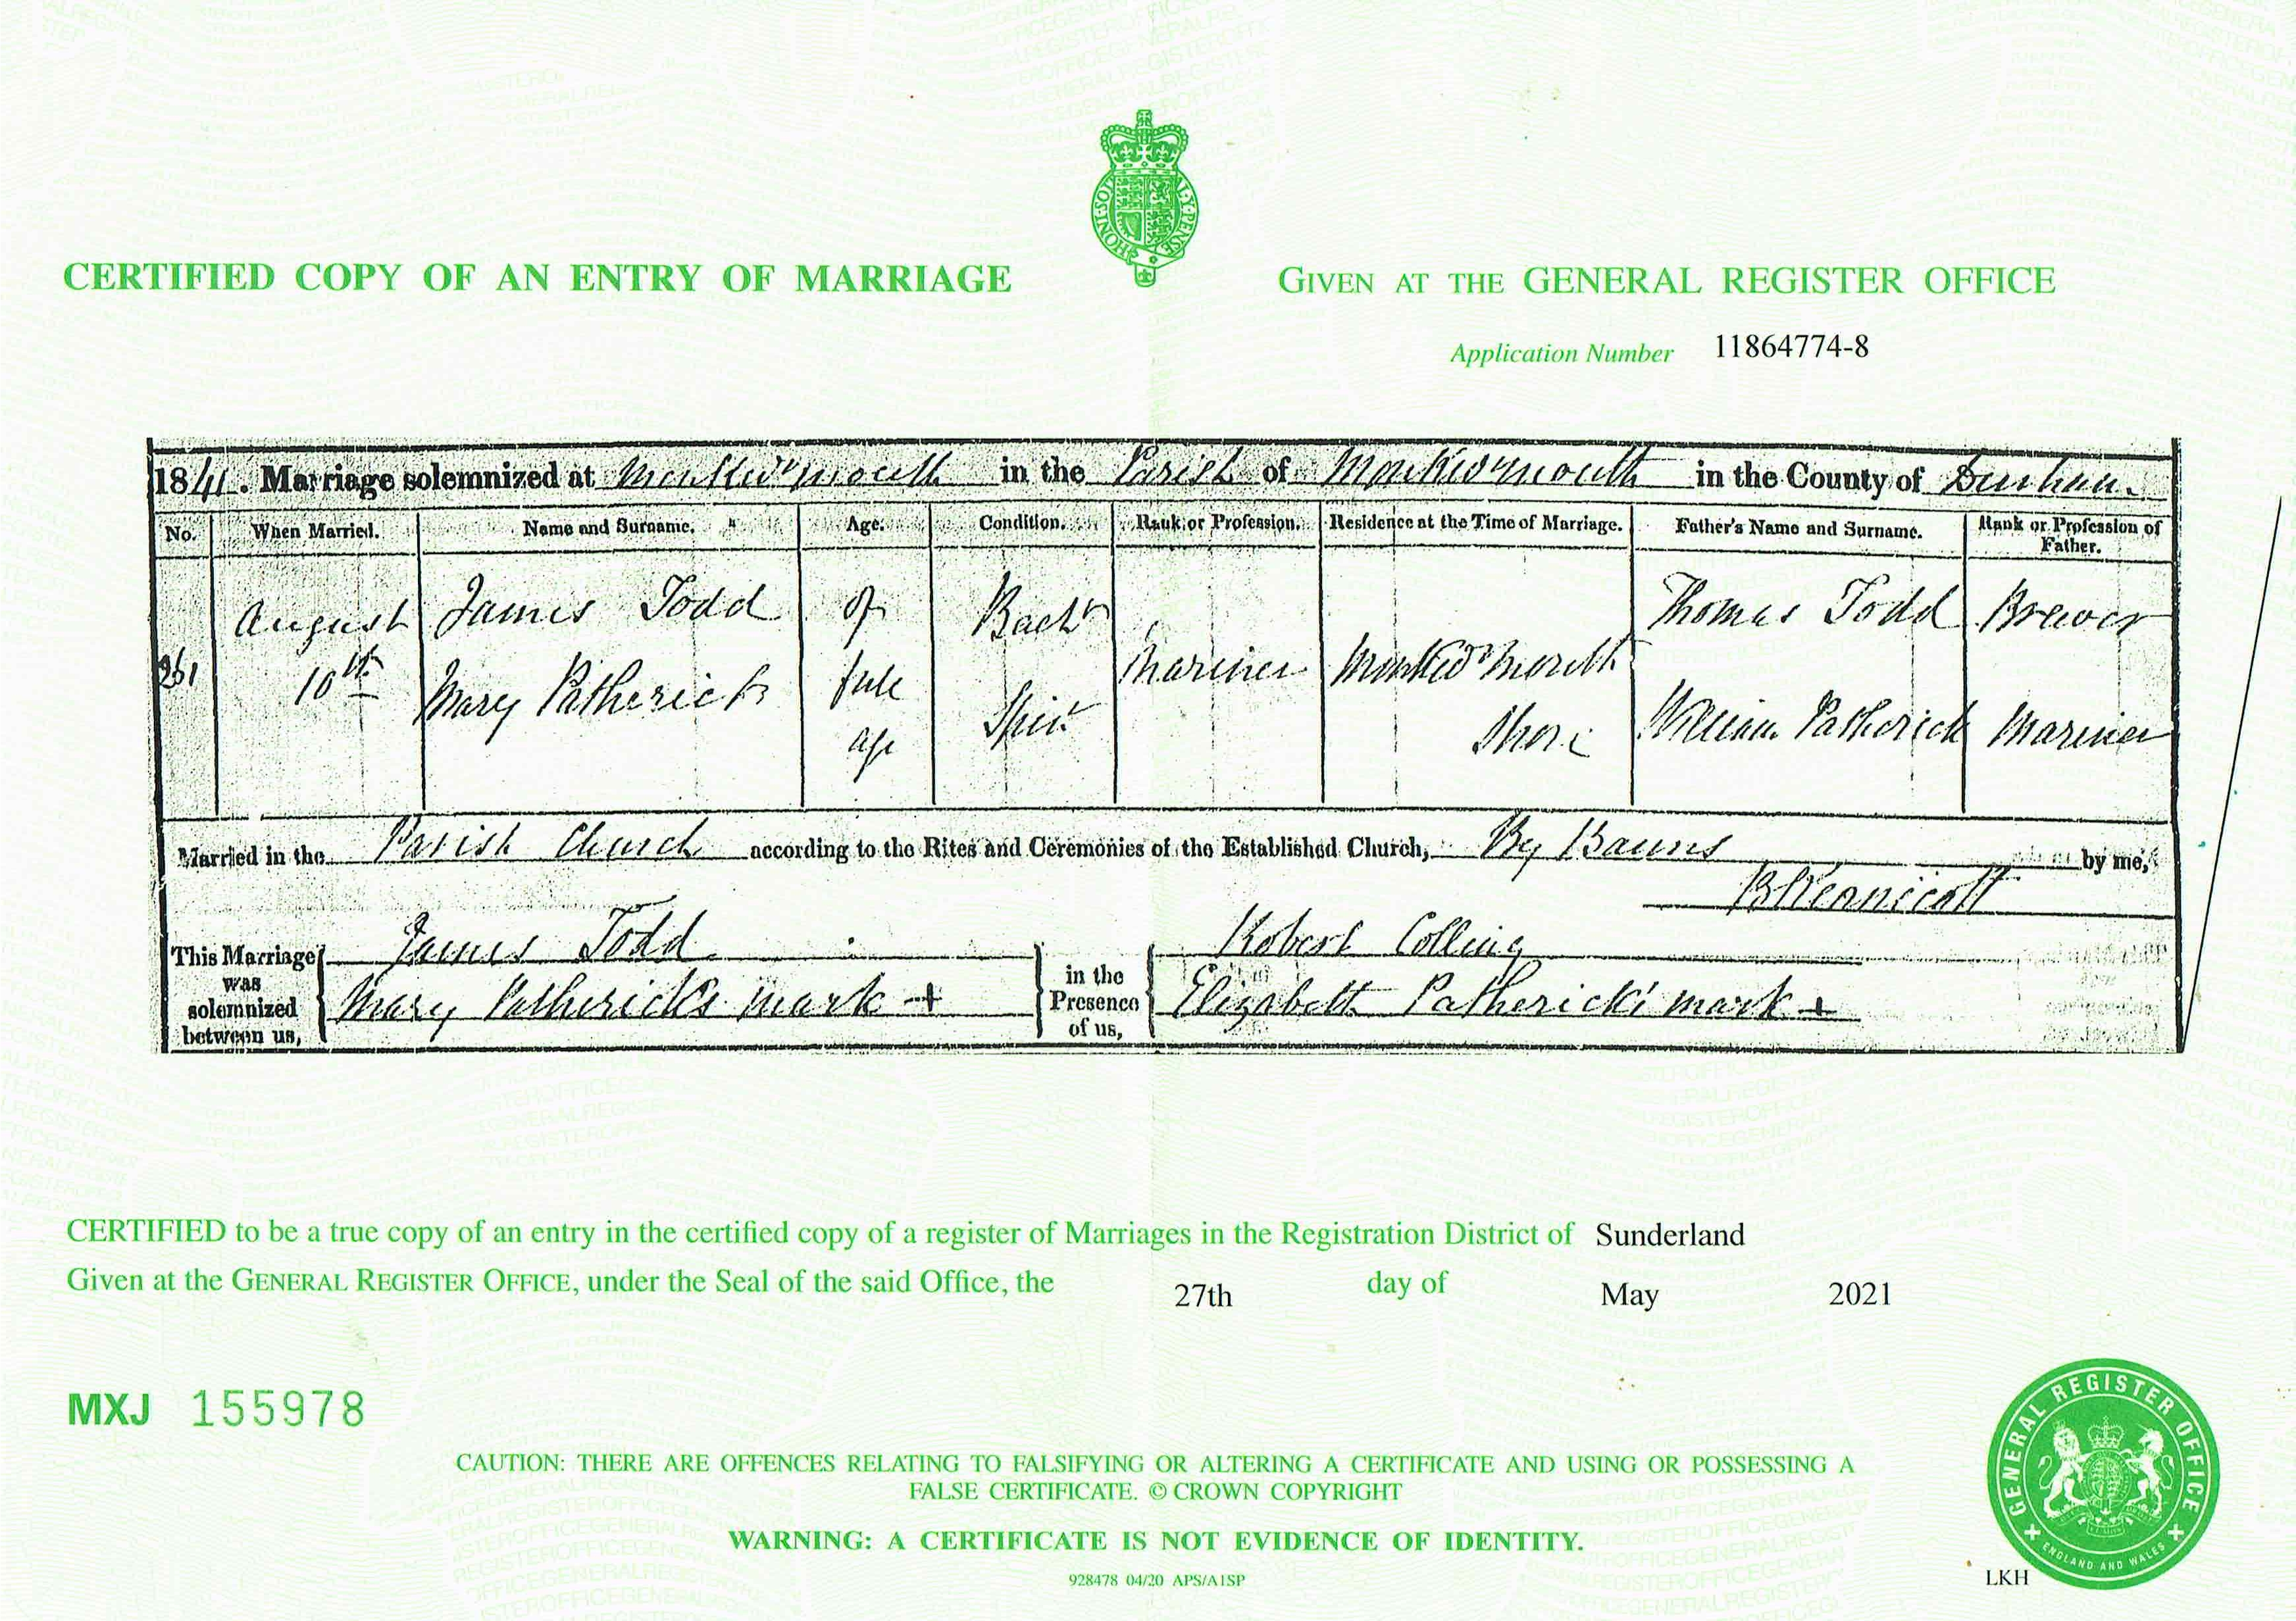 HONI·SOIT·QUI·MAL·Y·PENSE
CERTIFIED COPY OF AN ENTRY OF MARRIAGE
GIVEN AT THE GENERAL REGISTER OFFICE
Application Number 11864774-8
1841. Marriage solemnized at Monkwrmouth in the Parish of Monkwrmouth in the County of Durham.
No. When Married. Name and Surname. Age. Condition. Rank or Profession. Residence at the Time of Marriage. Father's Name and Surname. Rank or Profession of Father.
261 August 10th James Todd of full age Bachr Mariner Monkwrmouth Shore Thomas Todd Brewer
Mary Patherick Spinr William Patherick Mariner
Married in the Parish Church according to the Rites and Ceremonies of the Established Church, By Banns by me,
B Kennicott
This Marriage was solemnized between us, James Todd
Mary Patherick's mark +
in the Presence of us, Robert Colling
Elizabeth Patherick's mark +
CERTIFIED to be a true copy of an entry in the certified copy of a register of Marriages in the Registration District of Sunderland
Given at the GENERAL REGISTER OFFICE, under the Seal of the said Office, the 27th day of May 2021
MXJ 155978
CAUTION: THERE ARE OFFENCES RELATING TO FALSIFYING OR ALTERING A CERTIFICATE AND USING OR POSSESSING A
FALSE CERTIFICATE. © CROWN COPYRIGHT
WARNING: A CERTIFICATE IS NOT EVIDENCE OF IDENTITY.
928478 04/20 APS/A1SP
LKH
GENERAL REGISTER OFFICE
ENGLAND AND WALES